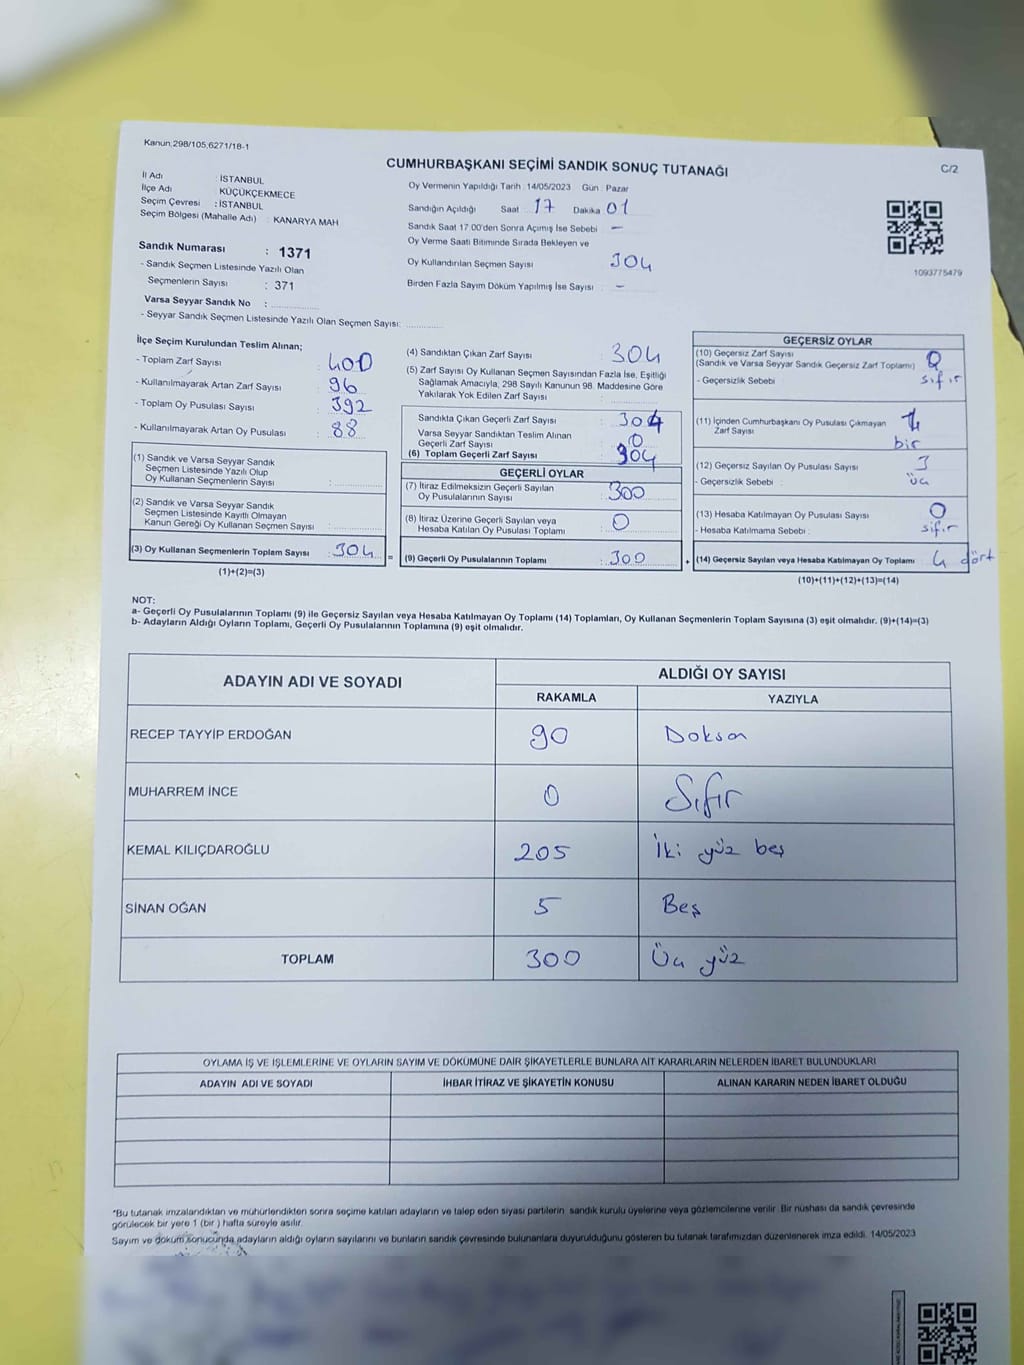 Kanun,298/105,6271/18-1
CUMHURBAŞKANI SEÇİMİ SANDIK SONUÇ TUTANAĞI
C/2
İl Adı : İSTANBUL
İlçe Adı : KÜÇÜKÇEKMECE
Seçim Çevresi : İSTANBUL
Seçim Bölgesi (Mahalle Adı) : KANARYA MAH
Sandık Numarası : 1371
- Sandık Seçmen Listesinde Yazılı Olan
Seçmenlerin Sayısı : 371
Varsa Seyyar Sandık No :
- Seyyar Sandık Seçmen Listesinde Yazılı Olan Seçmen Sayısı:
Oy Vermenin Yapıldığı Tarih : 14/05/2023 Gün : Pazar
Sandığın Açıldığı Saat 17 Dakika 01
Sandık Saat 17.00'den Sonra Açımış İse Sebebi : -
Oy Verme Saati Bitiminde Sırada Bekleyen ve
Oy Kullandırılan Seçmen Sayısı 304
Birden Fazla Sayım Döküm Yapılmış İse Sayısı : -
1093775479
İlçe Seçim Kurulundan Teslim Alınan;
- Toplam Zarf Sayısı : 400
- Kullanılmayarak Artan Zarf Sayısı : 96
- Toplam Oy Pusulası Sayısı : 392
- Kullanılmayarak Artan Oy Pusulası : 88
(1) Sandık ve Varsa Seyyar Sandık
Seçmen Listesinde Yazılı Olup
Oy Kullanan Seçmenlerin Sayısı :
(2) Sandık ve Varsa Seyyar Sandık
Seçmen Listesinde Kayıtlı Olmayan
Kanun Gereği Oy Kullanan Seçmen Sayısı :
(3) Oy Kullanan Seçmenlerin Toplam Sayısı : 304
(1)+(2)=(3)
=
(4) Sandıktan Çıkan Zarf Sayısı : 304
(5) Zarf Sayısı Oy Kullanan Seçmen Sayısından Fazla İse, Eşitliği
Sağlamak Amacıyla, 298 Sayılı Kanunun 98. Maddesine Göre
Yakılarak Yok Edilen Zarf Sayısı :
Sandıkta Çıkan Geçerli Zarf Sayısı : 304
Varsa Seyyar Sandıktan Teslim Alınan
Geçerli Zarf Sayısı : 0
(6) Toplam Geçerli Zarf Sayısı : 304
GEÇERLİ OYLAR
(7) İtiraz Edilmeksizin Geçerli Sayılan
Oy Pusulalarının Sayısı : 300
(8) İtiraz Üzerine Geçerli Sayılan veya
Hesaba Katılan Oy Pusulası Toplamı : 0
(9) Geçerli Oy Pusulalarının Toplamı : 300
+
GEÇERSİZ OYLAR
(10) Geçersiz Zarf Sayısı
(Sandık ve Varsa Seyyar Sandık Geçersiz Zarf Toplamı) : 0
- Geçersizlik Sebebi : sıfır
(11) İçinden Cumhurbaşkanı Oy Pusulası Çıkmayan
Zarf Sayısı : 1
bir
(12) Geçersiz Sayılan Oy Pusulası Sayısı : 3
- Geçersizlik Sebebi : üç
(13) Hesaba Katılmayan Oy Pusulası Sayısı : 0
- Hesaba Katılmama Sebebi : sıfır
(14) Geçersiz Sayılan veya Hesaba Katılmayan Oy Toplamı : 4 dört
(10)+(11)+(12)+(13)=(14)
NOT:
a- Geçerli Oy Pusulalarının Toplamı (9) ile Geçersiz Sayılan veya Hesaba Katılmayan Oy Toplamı (14) Toplamları, Oy Kullanan Seçmenlerin Toplam Sayısına (3) eşit olmalıdır. (9)+(14)=(3)
b- Adayların Aldığı Oyların Toplamı, Geçerli Oy Pusulalarının Toplamına (9) eşit olmalıdır.
ADAYIN ADI VE SOYADI
ALDIĞI OY SAYISI
RAKAMLA YAZIYLA
RECEP TAYYİP ERDOĞAN 90 Doksan
MUHARREM İNCE 0 Sıfır
KEMAL KILIÇDAROĞLU 205 İki yüz beş
SİNAN OĞAN 5 Beş
TOPLAM 300 Üç yüz
OYLAMA İŞ VE İŞLEMLERİNE VE OYLARIN SAYIM VE DÖKÜMÜNE DAİR ŞİKAYETLERLE BUNLARA AİT KARARLARIN NELERDEN İBARET BULUNDUKLARI
ADAYIN ADI VE SOYADI İHBAR İTİRAZ VE ŞİKAYETİN KONUSU ALINAN KARARIN NEDEN İBARET OLDUĞU
*Bu tutanak imzalandıktan ve mühürlendikten sonra seçime katılan adayların ve talep eden siyasi partilerin sandık kurulu üyelerine veya gözlemcilerine verilir. Bir nüshası da sandık çevresinde
görülecek bir yere 1 (bir ) hafta süreyle asılır.
Sayım ve döküm sonucunda adayların aldığı oyların sayılarını ve bunların sandık çevresinde bulunanlara duyurulduğunu gösteren bu tutanak tarafımızdan düzenlenerek imza edildi. 14/05/2023